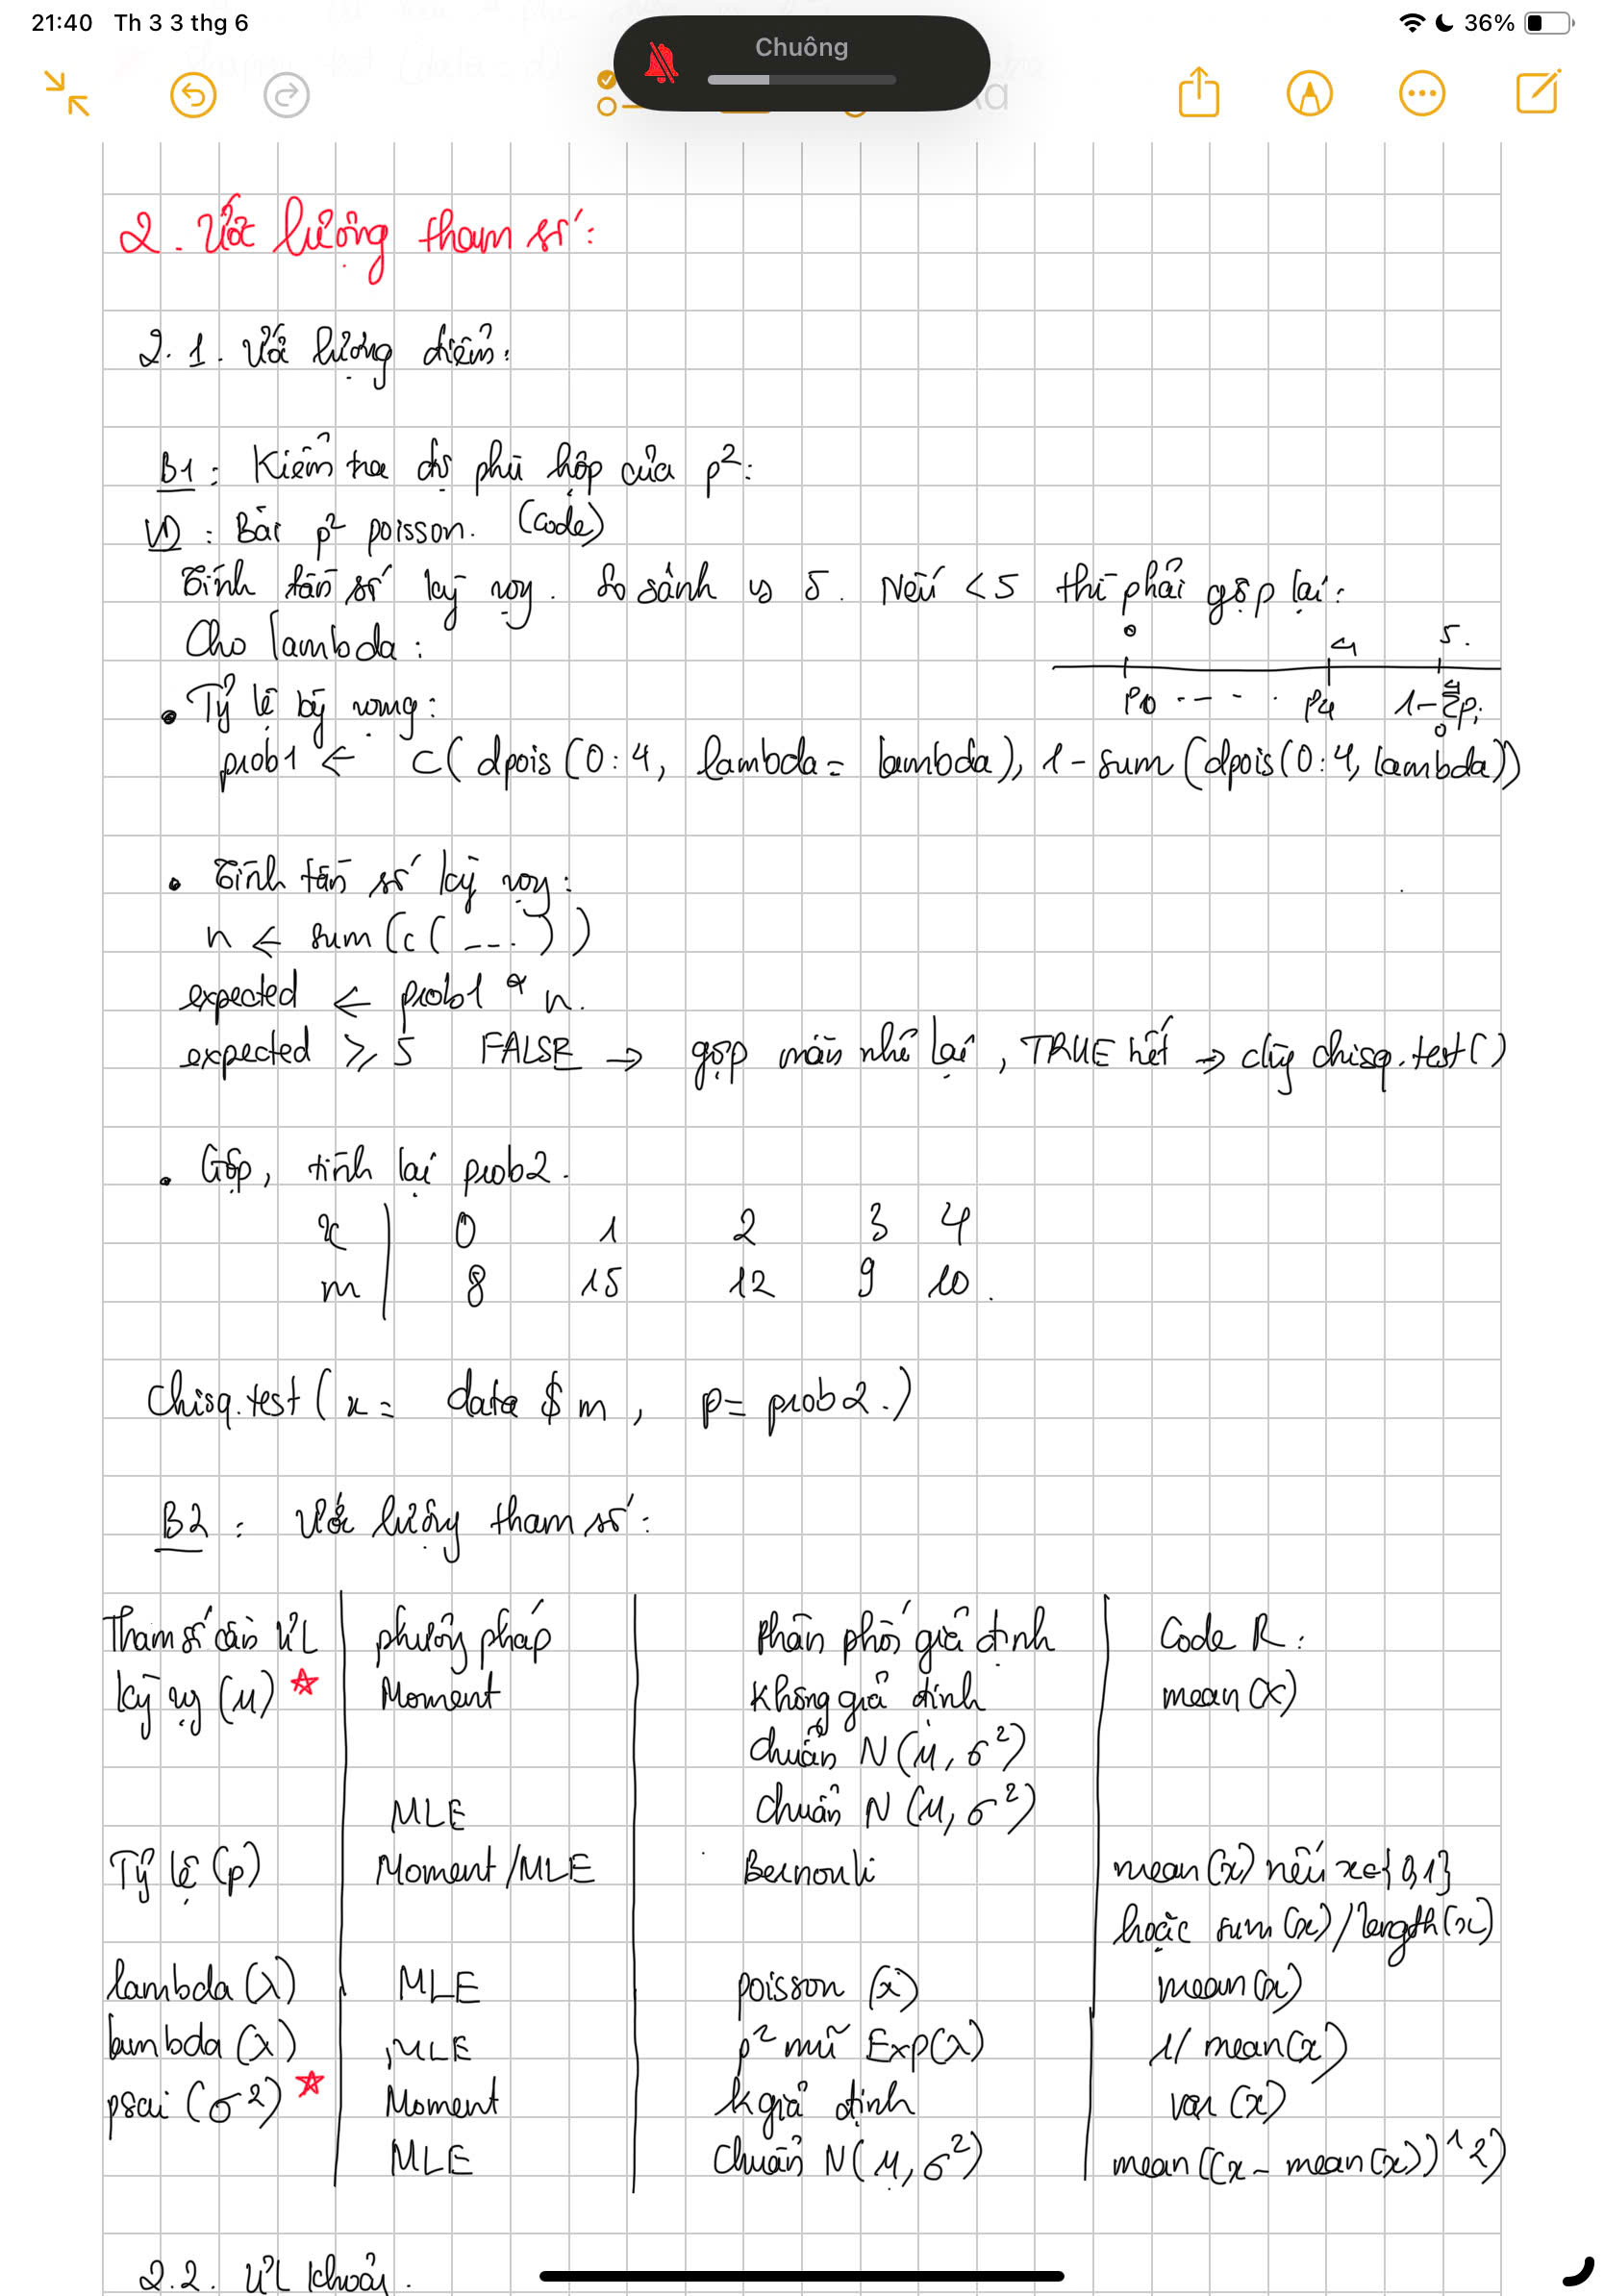 21:40 Th 3 3 thg 6
Chuông
36%
2. Ước lượng tham số:
2.1. Ước lượng điểm:
B1: Kiểm tra độ phù hợp của p²:
VD: Bài p² poisson. (code)
Tính tần số kỳ vọng. So sánh vs 5. Nếu <5 thì phải gộp lại:
Cho lambda:
0 4 5.
• Tỷ lệ kỳ vọng:
P0 --- . P4 1-Σpi
4
0
prob1 ← c(dpois(0:4, lambda = lambda), 1-sum(dpois(0:4, lambda))
• Tính tần số kỳ vọng:
n ← sum(c(---.))
expected ← prob1 * n.
expected ≥ 5 FALSE → gộp mãn nhỏ lại, TRUE hết → dùng chisq.test()
• Gộp, tính lại prob2.
x | 0 1 2 3 4
m | 8 15 12 9 10.
Chisq.test(x = data $ m, p = prob2.)
B2: Ước lượng tham số:
Tham số cần ƯL | phương pháp | Phân phối giả định | Code R:
kỳ vg (μ) ☆ | Moment | Không giả định | mean(x)
chuẩn N(μ, σ²)
MLE | chuẩn N(μ, σ²)
Tỷ lệ (p) | Moment/MLE | Bernouli | mean(x) nếu x∈{0,1}
hoặc sum(x)/length(x)
lambda (λ) | MLE | poisson (λ) | mean(x)
lambda (λ) | MLE | p² mũ Exp(λ) | 1/mean(x)
psai (σ²) ☆ | Moment | k giả định | var(x)
MLE | Chuẩn N(μ, σ²) | mean((x-mean(x))^2)
2.2. ƯL khoảng.